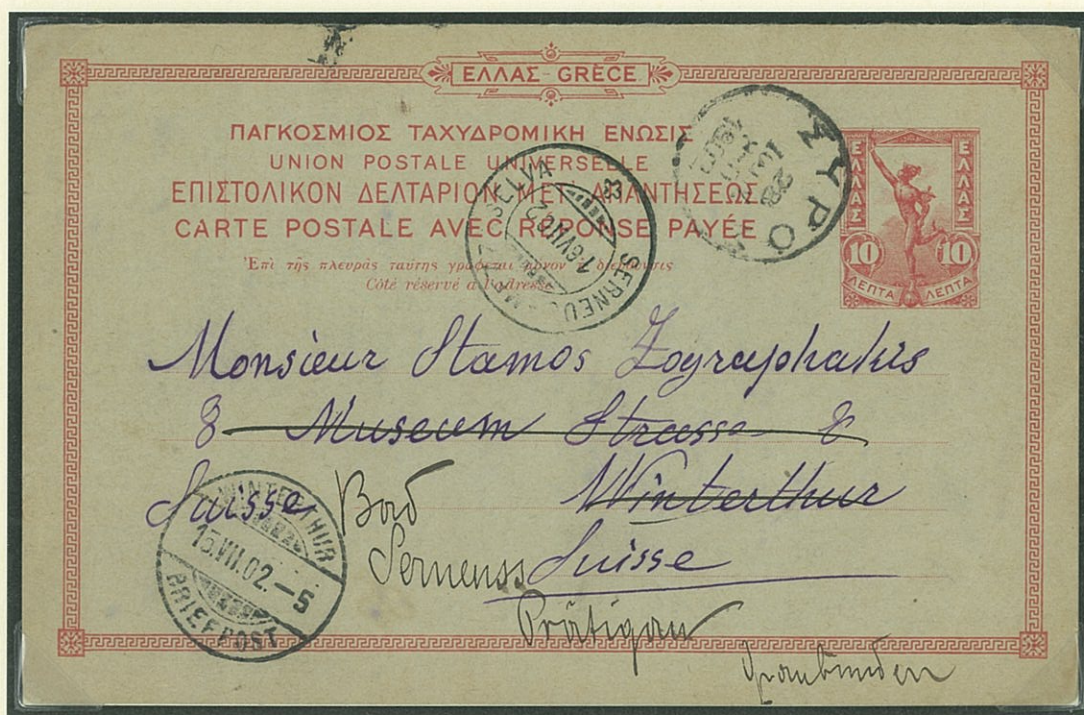 ΕΛΛΑΣ-GRÈCE
ΠΑΓΚΟΣΜΙΟΣ ΤΑΧΥΔΡΟΜΙΚΗ ΕΝΩΣΙΣ
UNION POSTALE UNIVERSELLE
ΕΠΙΣΤΟΛΙΚΟΝ ΔΕΛΤΑΡΙΟΝ ΜΕΤ' ΑΠΑΝΤΗΣΕΩΣ
CARTE POSTALE AVEC RÉPONSE PAYÉE
Ἐπὶ τῆς πλευρᾶς ταύτης γράφεται μόνον ἡ διεύθυνσις
Côté réservé à l'adresse
ΣΥΡΟΣ
ΕΛΛΑΣ ΕΛΛΑΣ
10 10
ΛΕΠΤΑ ΛΕΠΤΑ
SERNEUS
16 VII 02
Monsieur Stamos Zographakis
8 Museum Strasse 8
Suisse Winterthur
Suisse
Bad
Serneuss
Prätigau
Graubünden
WINTERTHUR
15.VII.02.-5
BRIEFPOST